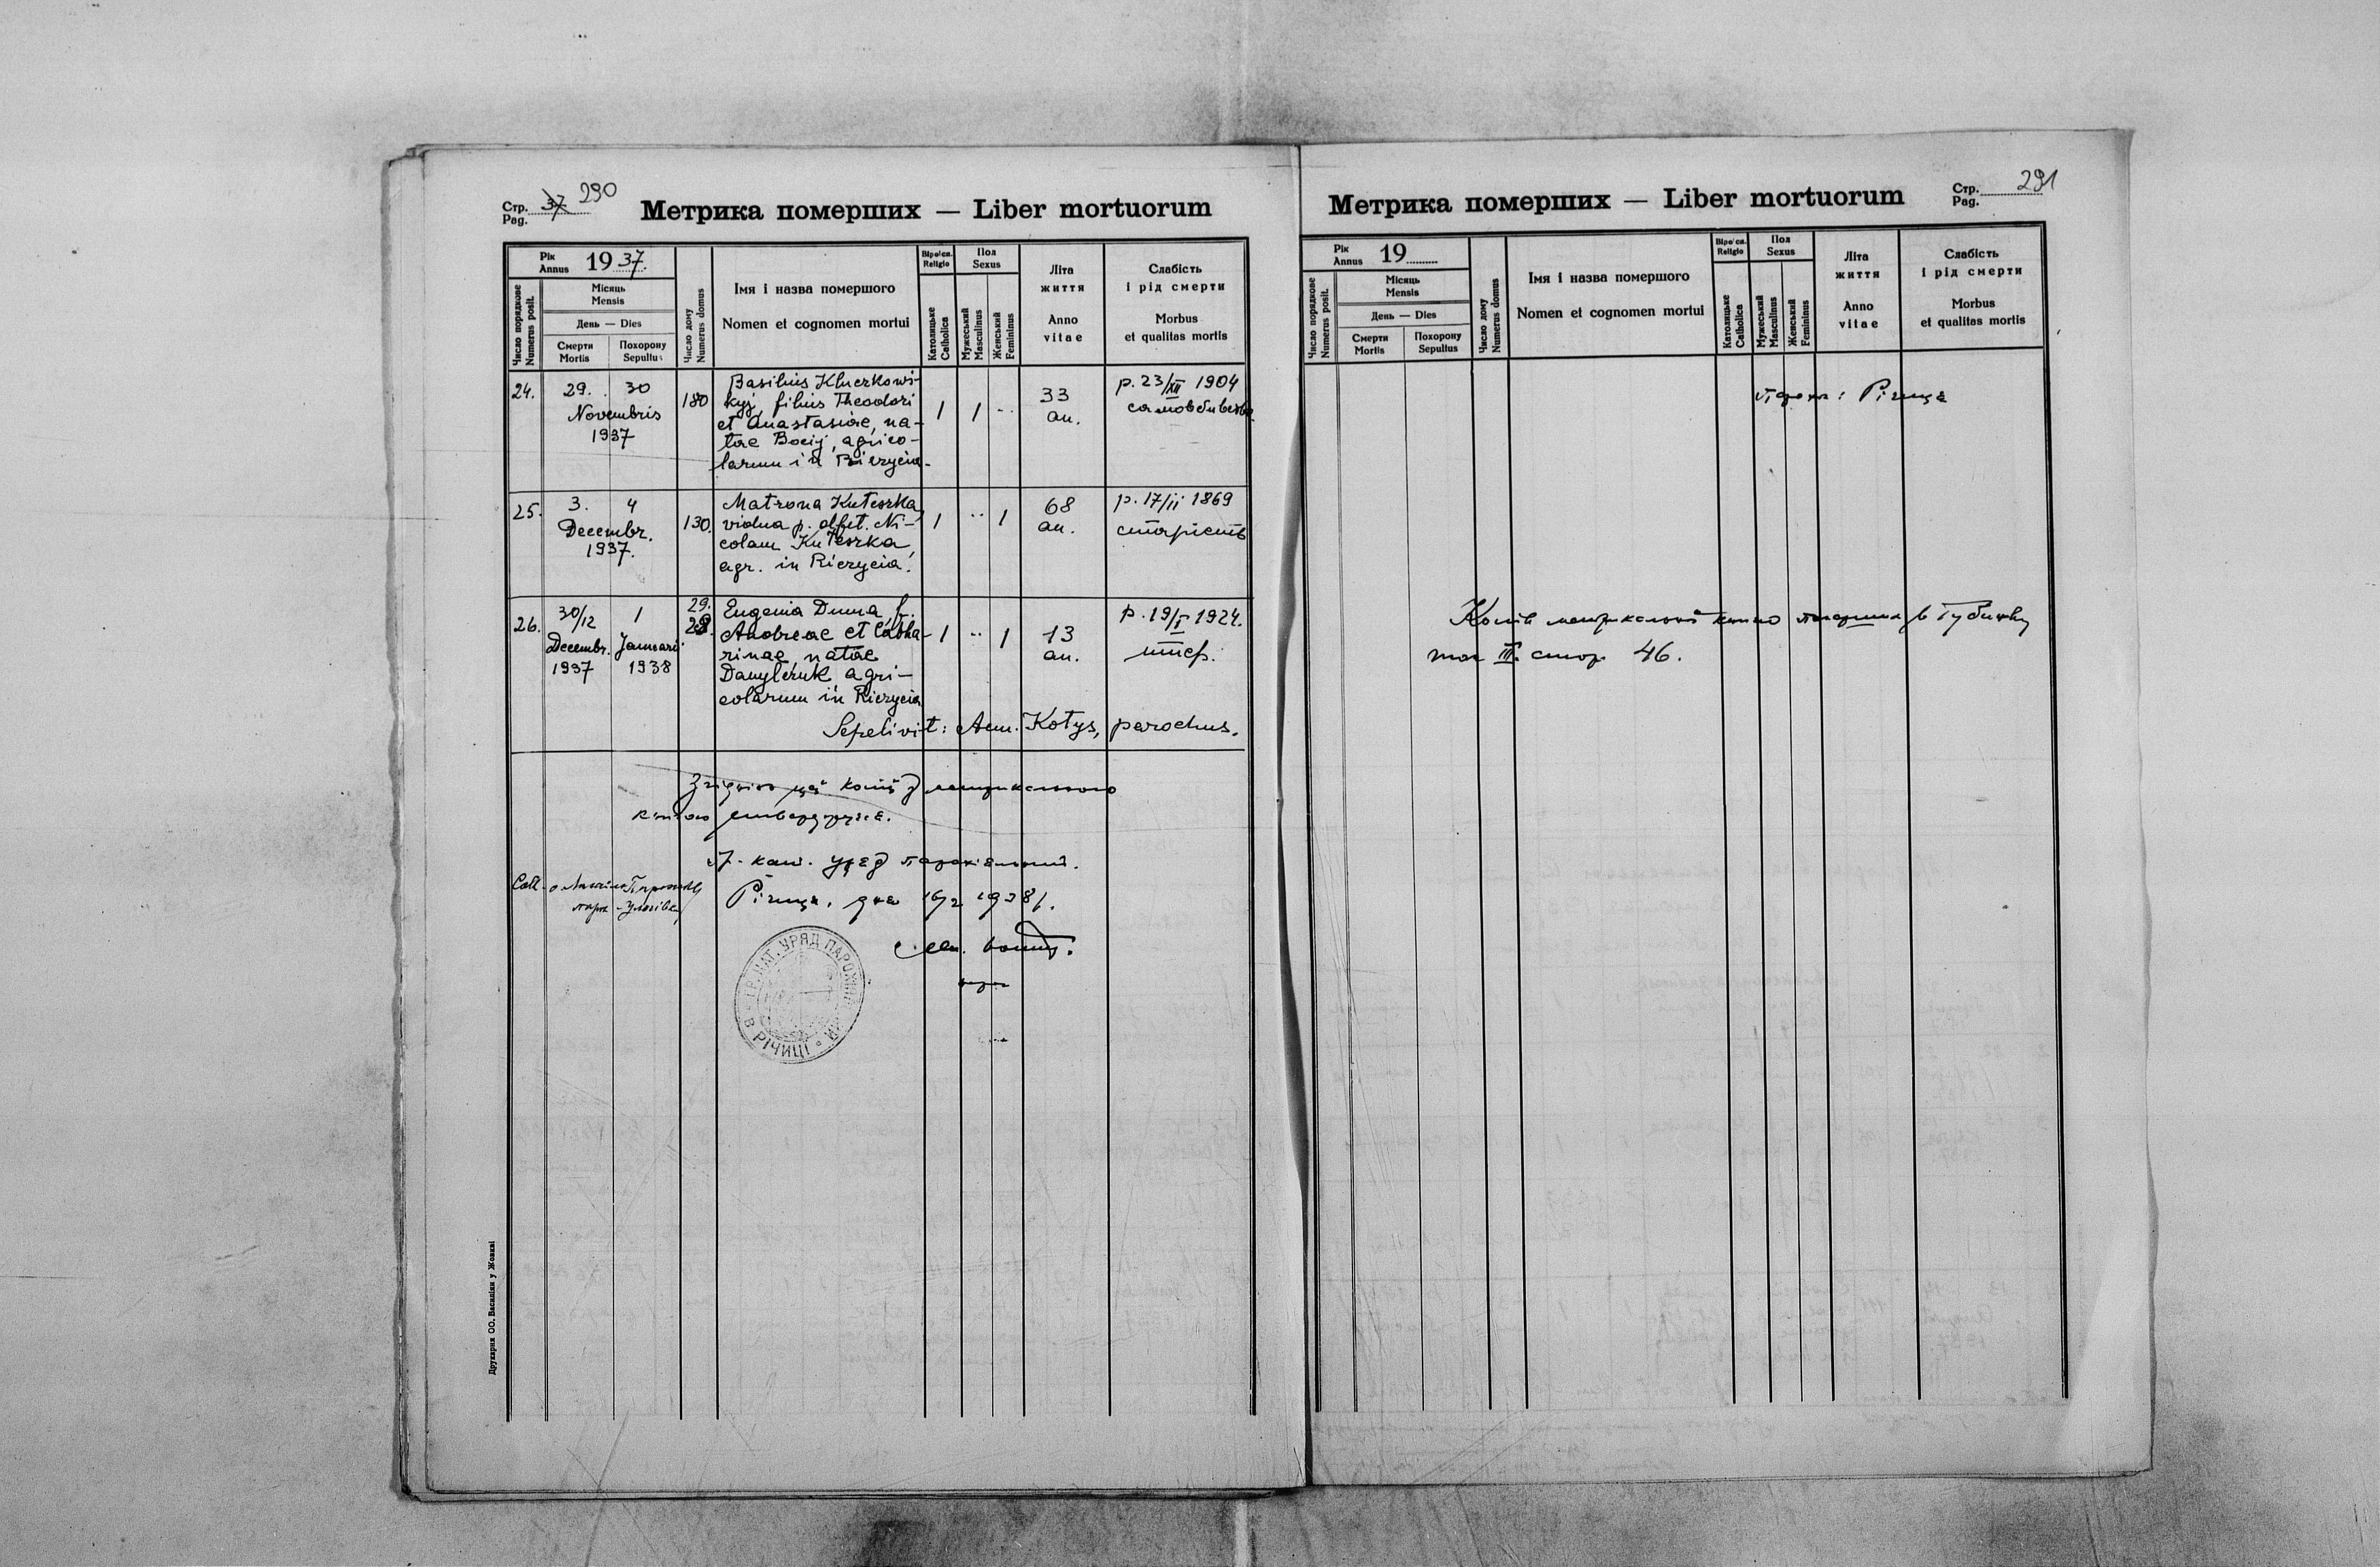 Стр. Pag. 37 290
Метрика померших — Liber mortuorum
Рік Annus 1937.
Число порядкове Numerus posit.
Місяць Mensis
День — Dies
Смерти Mortis
Похорону Sepultus
Число дому Numerus domus
Імя і назва помершого
Nomen et cognomen mortui
Віроісп. Religio
Католицьке Catholica
Пол Sexus
Мужеський Masculinus
Женський Femininus
Літа життя
Anno vitae
Слабість і рід смерти
Morbus et qualitas mortis
24. 29. 30 Novembris 1937
180
Basilius Kluczkowi-
kyj, filius Theodori
et Anastasiae, na-
tae Bocij, agrico-
larum in Riczycia.
1 1 ..
33 an.
р. 23/XII 1904
самовбивство
25. 3. 4 Decembr. 1937.
130.
Matrona Kuteszka
vidua p. defct. Ni-
colaum Kuteszka,
agr. in Riczycia.
1 .. 1
68 an.
р. 17/ii 1869
старість
26. 30/12 Decembr. 1937
1 Januarii 1938
29. 28.
Eugenia Duma f.
Andreae et Catha-
rinae natae
Danylczuk agri-
colarum in Riczycia
1 .. 1
13 an.
р. 19/I 1924.
Sepelivit: Aem. Kotys, parochus.
Згідність цеї копії з метрикальною
книгою стверджує.
Гр. кат. уряд парохіяльний.
Річиця, дня 16/2 1938 р.
УРЯД ПАРОХ
В РІЧИЦІ
Друкарня ОО. Василіян у Жовкві
Метрика померших — Liber mortuorum
Стр. Pag. 291
Рік Annus 19
Число порядкове Numerus posit.
Місяць Mensis
День — Dies
Смерти Mortis
Похорону Sepultus
Число дому Numerus domus
Імя і назва помершого
Nomen et cognomen mortui
Віроісп. Religio
Католицьке Catholica
Пол Sexus
Мужеський Masculinus
Женський Femininus
Літа життя
Anno vitae
Слабість і рід смерти
Morbus et qualitas mortis
Річиця
Копія
том III. стор. 46.